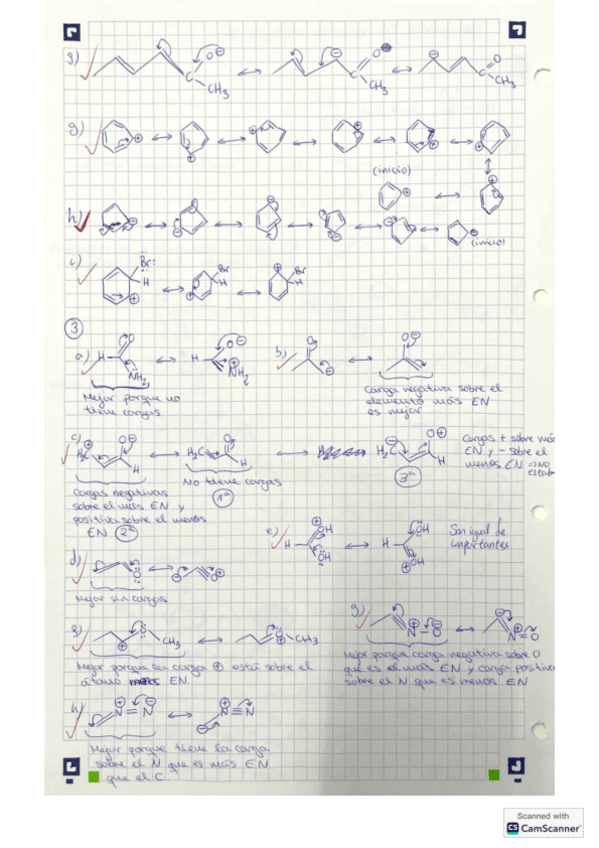 g)
CH3
CH3
CH3
g)
(inicio)
h)
(inicio)
i)
Br
H
Br
H
Br
H
3
a) H
NH2
H
NH2
b)
Mejor porque no
tiene cargas
Carga negativa sobre el
elemento más EN
es mejor
c) H2C
H
H2C
H
H2C
H
Cargas + sobre más
EN y - sobre el
menos EN => No
estab
No tiene cargas
1ª
3ª
Cargas negativas
sobre el más EN y
positiva sobre el menos
EN 2ª
e) H
OH
OH
H
OH
OH
Son igual de
importantes
d)
Mejor sin cargas
g)
N-O
N=O
Mejor porque carga negativa sobre O
que es el más EN y carga positiva
sobre el N que es menos EN
CH3
CH3
Mejor porque su carga + está sobre el
átomo menos EN
h)
N=N
N≡N
Mejor porque tiene la carga
sobre el N que es más EN
que el C.
Scanned with
CS CamScanner